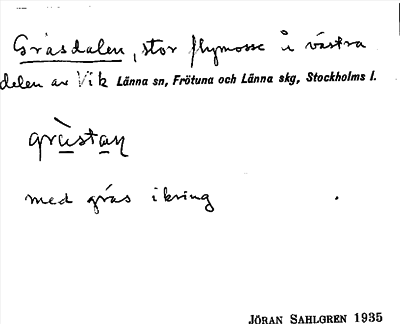 Gräsdalen, stor flymosse å västra
delen av Vik Länna sn, Frötuna och Länna skg, Stockholms l.
med gräs ikring
JÖRAN SAHLGREN 1935